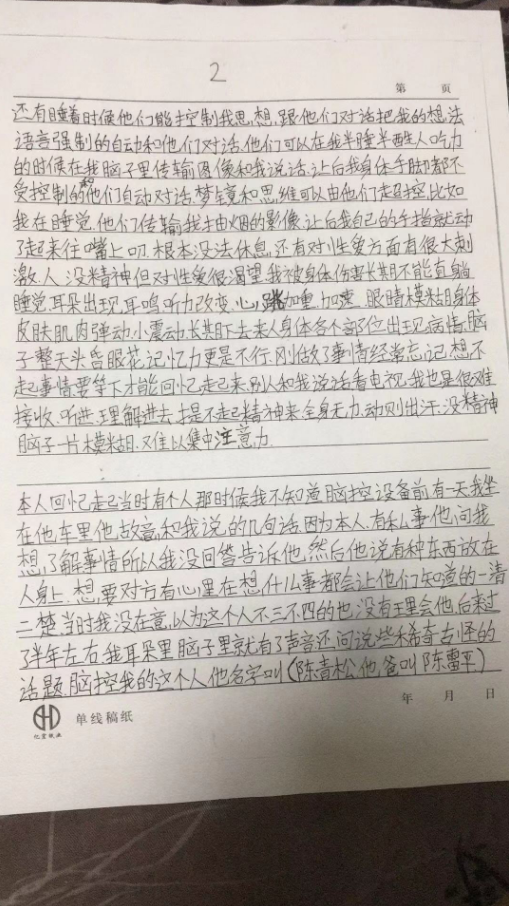 2
第 页
还有睡着时候他们能控制我思想,跟他们对话把我的想法
语言强制的自动和他们对话.他们可以在我半睡半醒人吃力
的时候在我脑子里传输图像和我说话.让后我身体手脚都不
受控制的和他们自动对话.梦境和思维可以由他们走起控.比如
我在睡觉.他们传输我抽烟的影像.让后我自己的手指就动
了起来往嘴上叨.根本没法休息.还有对性爱方面有很大刺
激.人没精神但对性爱很渴望.我被身体伤害长期不能直躺
睡觉.耳朵出现耳鸣.听力改变.心跳加重.加速.眼睛模糊.身体
皮肤肌肉弹动.小震动.长期下去来人身体各个部位出现病情.脑
子整天头昏眼花.记忆力更是不行.刚做了事情经常忘记.想不
起事情要等下才能回忆起来.别人和我说话看电视.我也是很难
接收.听进.理解进去.提不起精神来.全身无力.动则出汗.没精神
脑子一片模糊.难以集中注意力
本人回忆起当时有个人那时候我不知道脑控设备前有一天我坐
在他车里他故意和我说的几句话.因为本人有私事他问我
想了解事情所以我没回答告诉他.然后他说有种东西放在
人身上.想要对方有心里在想什么事都会让他们知道的一清
二楚.当时我没在意.以为这个人不三不四的也没有理会他.后来过
了半年左右.我耳朵里脑子里就有了声音还问说些稀奇古怪的
话题.脑控我的这个人他名字叫(陈青松他爸叫陈雷平)
年 月 日
单线稿纸